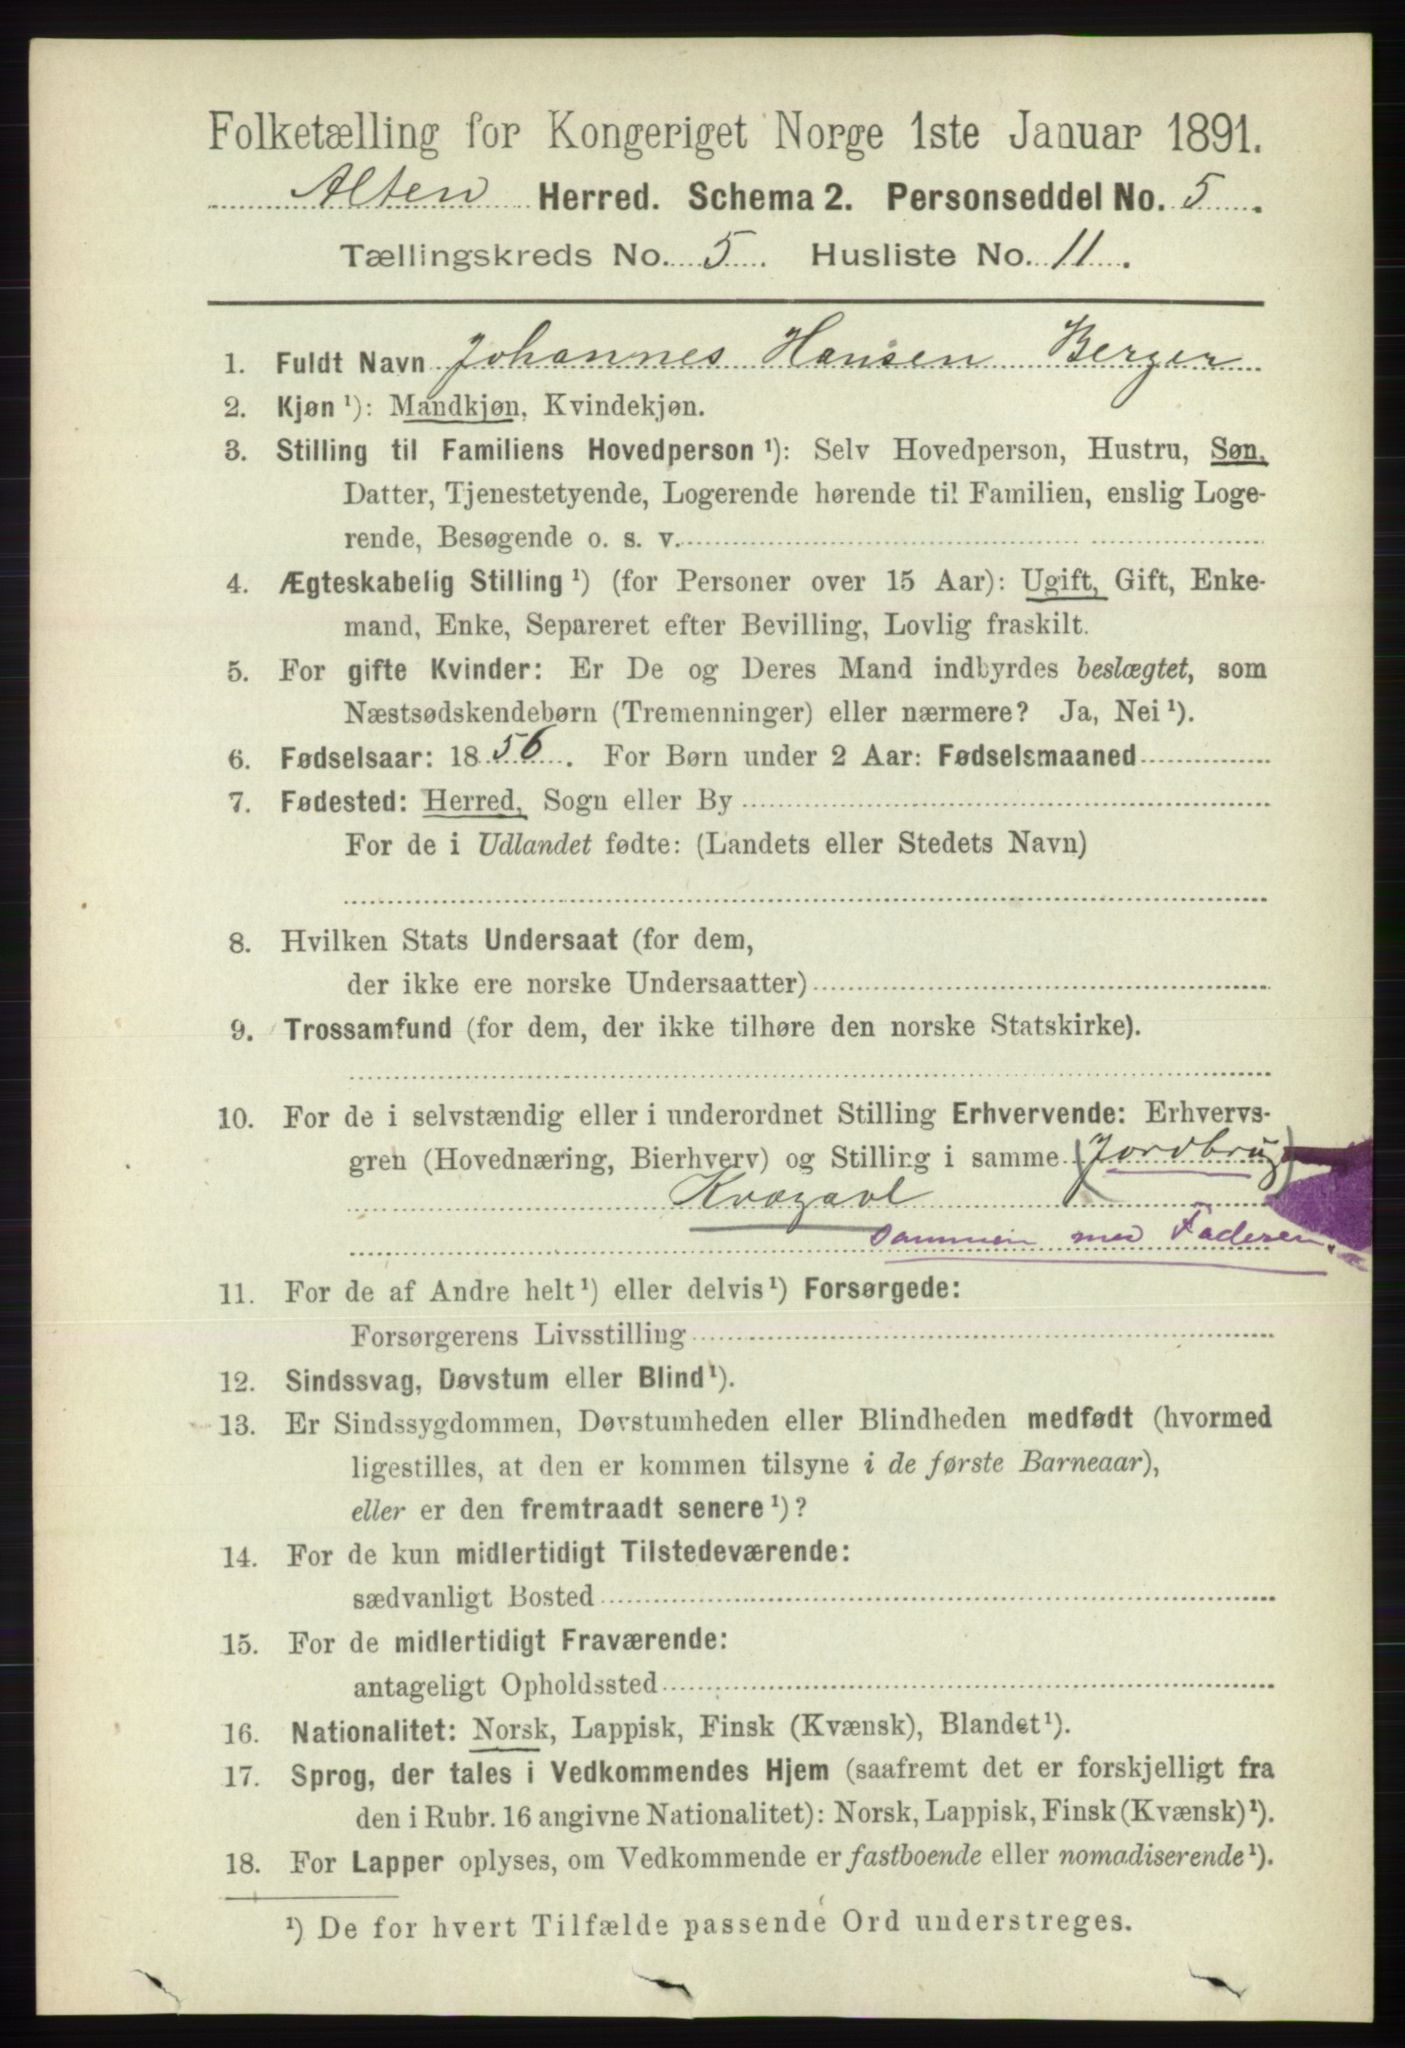 Folketælling for Kongeriget Norge 1ste Januar 1891.
Alten Herred. Schema 2. Personseddel No. 5.
Tællingskreds No. 5. Husliste No. 11.
1. Fuldt Navn Johannes Hansen Berger
2. Kjøn ¹): Mandkjøn, Kvindekjøn.
3. Stilling til Familiens Hovedperson ¹): Selv Hovedperson, Hustru, Søn,
Datter, Tjenestetyende, Logerende hørende til Familien, enslig Loge-
rende, Besøgende o. s. v.
4. Ægteskabelig Stilling ¹) (for Personer over 15 Aar): Ugift, Gift, Enke-
mand, Enke, Separeret efter Bevilling, Lovlig fraskilt.
5. For gifte Kvinder: Er De og Deres Mand indbyrdes beslægtet, som
Næstsødskendebørn (Tremenninger) eller nærmere? Ja, Nei ¹).
6. Fødselsaar: 1856. For Børn under 2 Aar: Fødselsmaaned
7. Fødested: Herred, Sogn eller By
For de i Udlandet fødte: (Landets eller Stedets Navn)
8. Hvilken Stats Undersaat (for dem,
der ikke ere norske Undersaatter)
9. Trossamfund (for dem, der ikke tilhøre den norske Statskirke).
10. For de i selvstændig eller i underordnet Stilling Erhvervende: Erhvervs-
gren (Hovednæring, Bierhverv) og Stilling i samme (Jordbrug)
Kvægavl
sammen med Faderen.
11. For de af Andre helt ¹) eller delvis ¹) Forsørgede:
Forsørgerens Livsstilling
12. Sindssvag, Døvstum eller Blind ¹).
13. Er Sindssygdommen, Døvstumheden eller Blindheden medfødt (hvormed
ligestilles, at den er kommen tilsyne i de første Barneaar),
eller er den fremtraadt senere ¹)?
14. For de kun midlertidigt Tilstedeværende:
sædvanligt Bosted
15. For de midlertidigt Fraværende:
antageligt Opholdssted
16. Nationalitet: Norsk, Lappisk, Finsk (Kvænsk), Blandet ¹).
17. Sprog, der tales i Vedkommendes Hjem (saafremt det er forskjelligt fra
den i Rubr. 16 angivne Nationalitet): Norsk, Lappisk, Finsk (Kvænsk) ¹).
18. For Lapper oplyses, om Vedkommende er fastboende eller nomadiserende ¹).
¹) De for hvert Tilfælde passende Ord understreges.